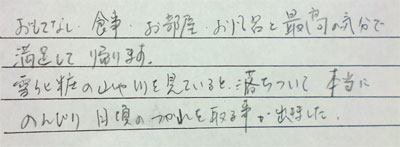 おもてなし、食事、お部屋、お風呂と最高の気分で
満足して帰ります。
雪化粧の山や川を見ていると、落ちついて本当に
のんびり日頃のつかれを取る事が出来ました。